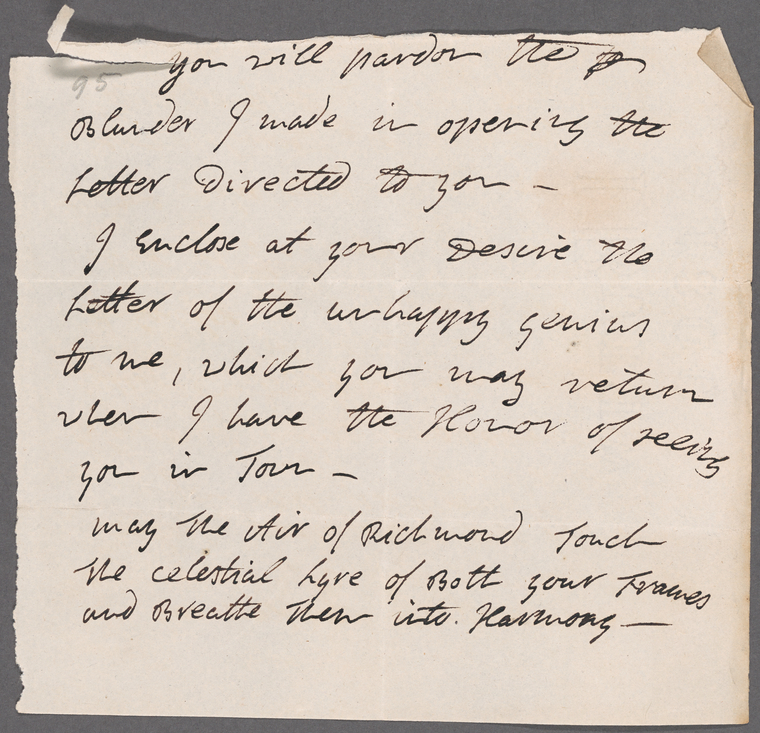 you will pardon the
95
Blunder I made in opening the
Letter Directed to you -
I Enclose at your Desire the
Letter of the unhappy genius
to me, which you may return
when I have the Honor of seeing
you in Town -
may the Air of Richmond Touch
the celestial Lyre of Both your Frames
and Breathe them into. Harmony -